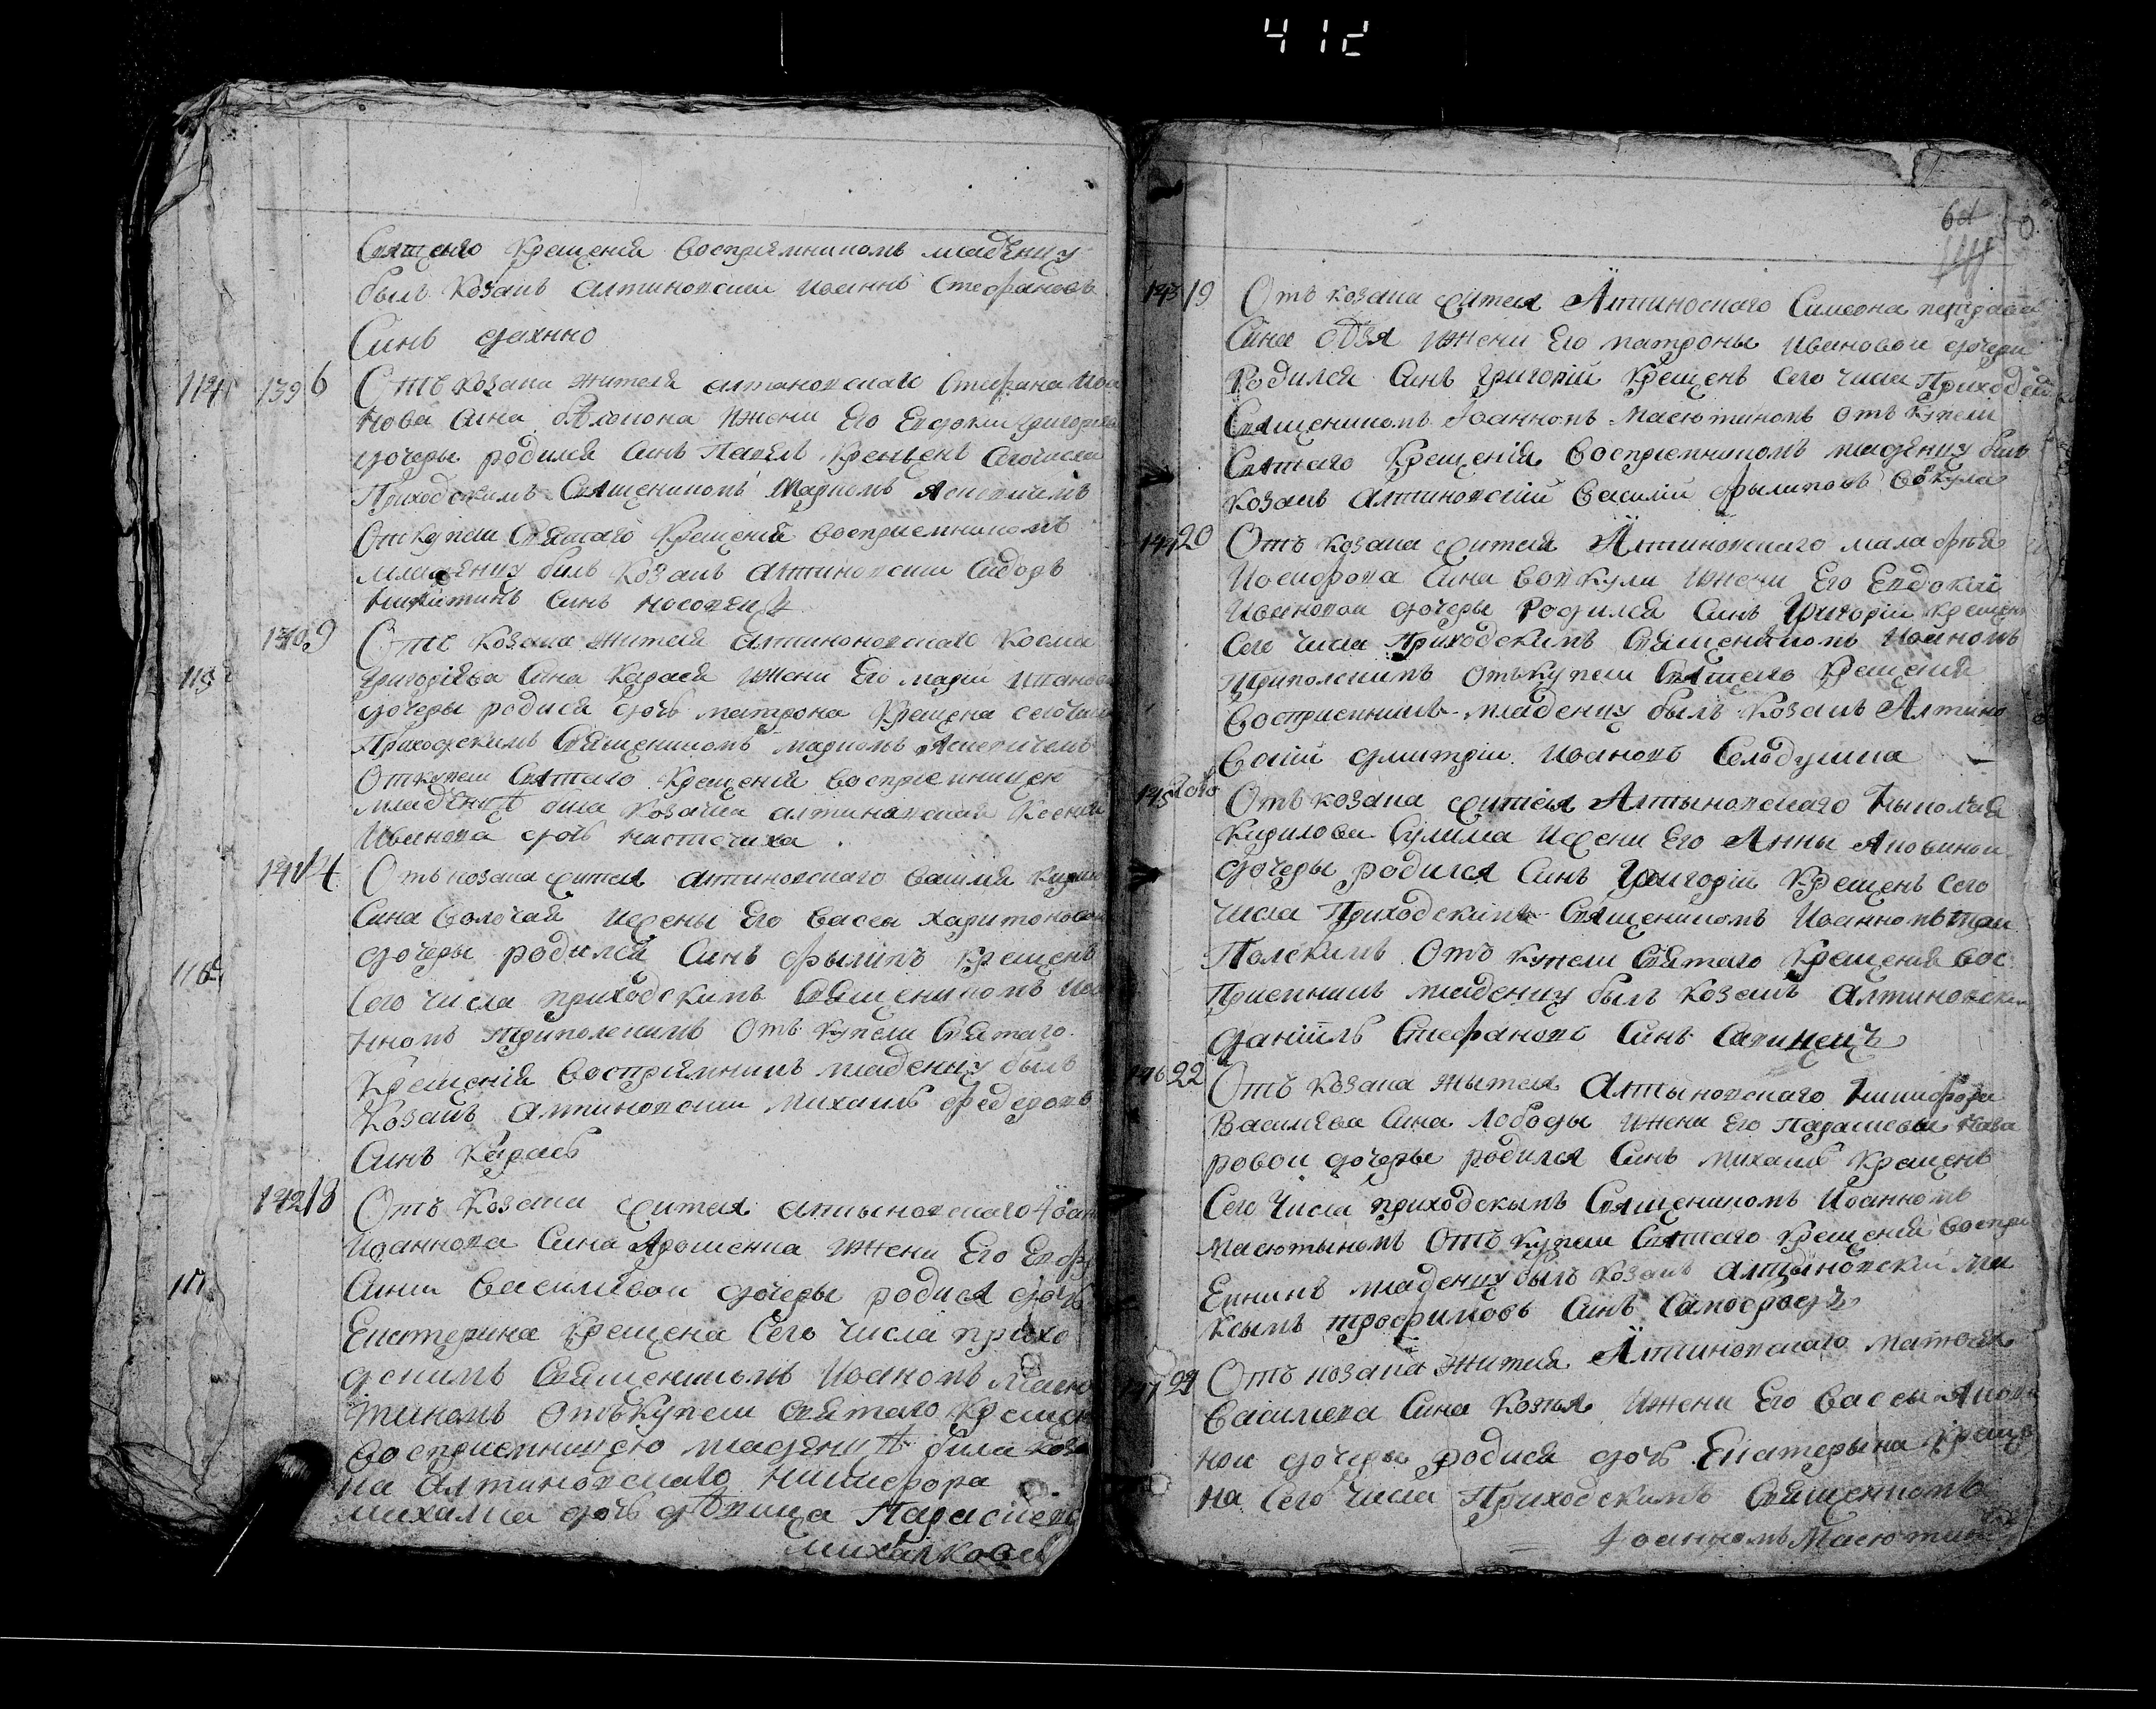 412
Святаго крещенія восприемникомъ младенцу
былъ козакъ алтиновскии Иоаннъ Стефановъ
Синъ дахнно
114 139 6 Отъ козака жителя алтиновскаго Стефана Ива
нова сина жени его Евдокии Григориев
дочеры родился синъ Павелъ крещенъ сего числа
Приходскимъ Священикомъ Маркомъ
От купели Святаго Крещенія восприемникомъ
младенцу билъ козакъ алтиновскии Сидоръ
Никитинъ синъ
140 9 Отъ козака жителя алтиноновскаго Косми
Григоріява сина Карася жени его Марии Ивановой
115 дочеры родися дочь Матрона крещена сего числа
Приходскимъ Священикомъ Маркомъ
От купели Святаго Крещенія восприемницею
младеницѣ била козачка алтиновская Ксения
Иванова дочь
141 14 Отъ козака жителя алтиновскаго Василія Кирил
сина Волочая жены его Васси Харитоновой
дочеры родился синъ Филипъ крещенъ
116 Сего числа приходскимъ Священикомъ Иоа
нномъ Трипольскимъ отъ купели Святаго
Крещенія восприямникъ младенцу былъ
Козакъ алтиновскии Михаилъ Федоровъ
Синъ Карась
142 18 Отъ козака жителя алтыновскаго Іоан
Иоаннова сина Ярошенка жени его Евфро
Синии Василиевои дочеры родися дочь
117 Екатерина крещена сего числа прихо
дскимъ Священикомъ Иоаномъ Масю
тиномъ отъ купели святаго крещен
восприемницею младеницѣ била коза
ка алтиновскаго Никифора
Михалка дочь дѣвица Параскева
Михалкова
64
143 19 Отъ козака жителя Алтиноскаго Симеона
Сина жени его Матроны Ивановои дочери
Родился синъ Григорій крещенъ сего числа Приходски
Священикомъ Іоанномъ Масютиномъ отъ купели
Святаго Крещенія восприемникомъ младенцу былъ
козакъ алтиновскій Василий Филиповъ Вовкула
144 20 Отъ козака жителя Алтиновскаго Малафѣя
Иосифова сина Вовкули жени его Евдокіи
Ивановои дочеры родился синъ Григории крещен
Сего числа Приходскимъ Священикомъ Иоаномъ
Трипольскимъ отъ купели святаго крещенія
восприемникъ младенцу былъ козакъ Алтино
вский Дмитрии Ивановъ
145 Тогоже Отъ козака жителя Алтыновскаго Николая
Кирилова Сулима жени его Анны
дочеры родился синъ Григории крещенъ сего
числа Приходскимъ Священикомъ Иоанномъ Три
Полскимъ отъ купели святаго крещенія вос
Приемникъ младенцу былъ козакъ алтиновски
Даніилъ Стефановъ синъ
146 22 Отъ козака жытеля Алтыновскаго Никифора
Василева сина Лободы жени его Параскевы Наза
ровои дочеры родился синъ Михаилъ крещенъ
Сего числа приходскымъ Священикомъ Иоанномъ
Масютыномъ отъ купели святаго крещения воспри
Емникъ младенцу былъ козакъ алтыновский Ма
ксымъ Трофимовъ синъ
147 29 Отъ козака жителя Алтиновскаго Матвея
Василева сина жени его Васси
нои дочеры родися дочь Екатерына креще
на сего числа Приходскимъ Священикомъ
Іоанномъ Масютин